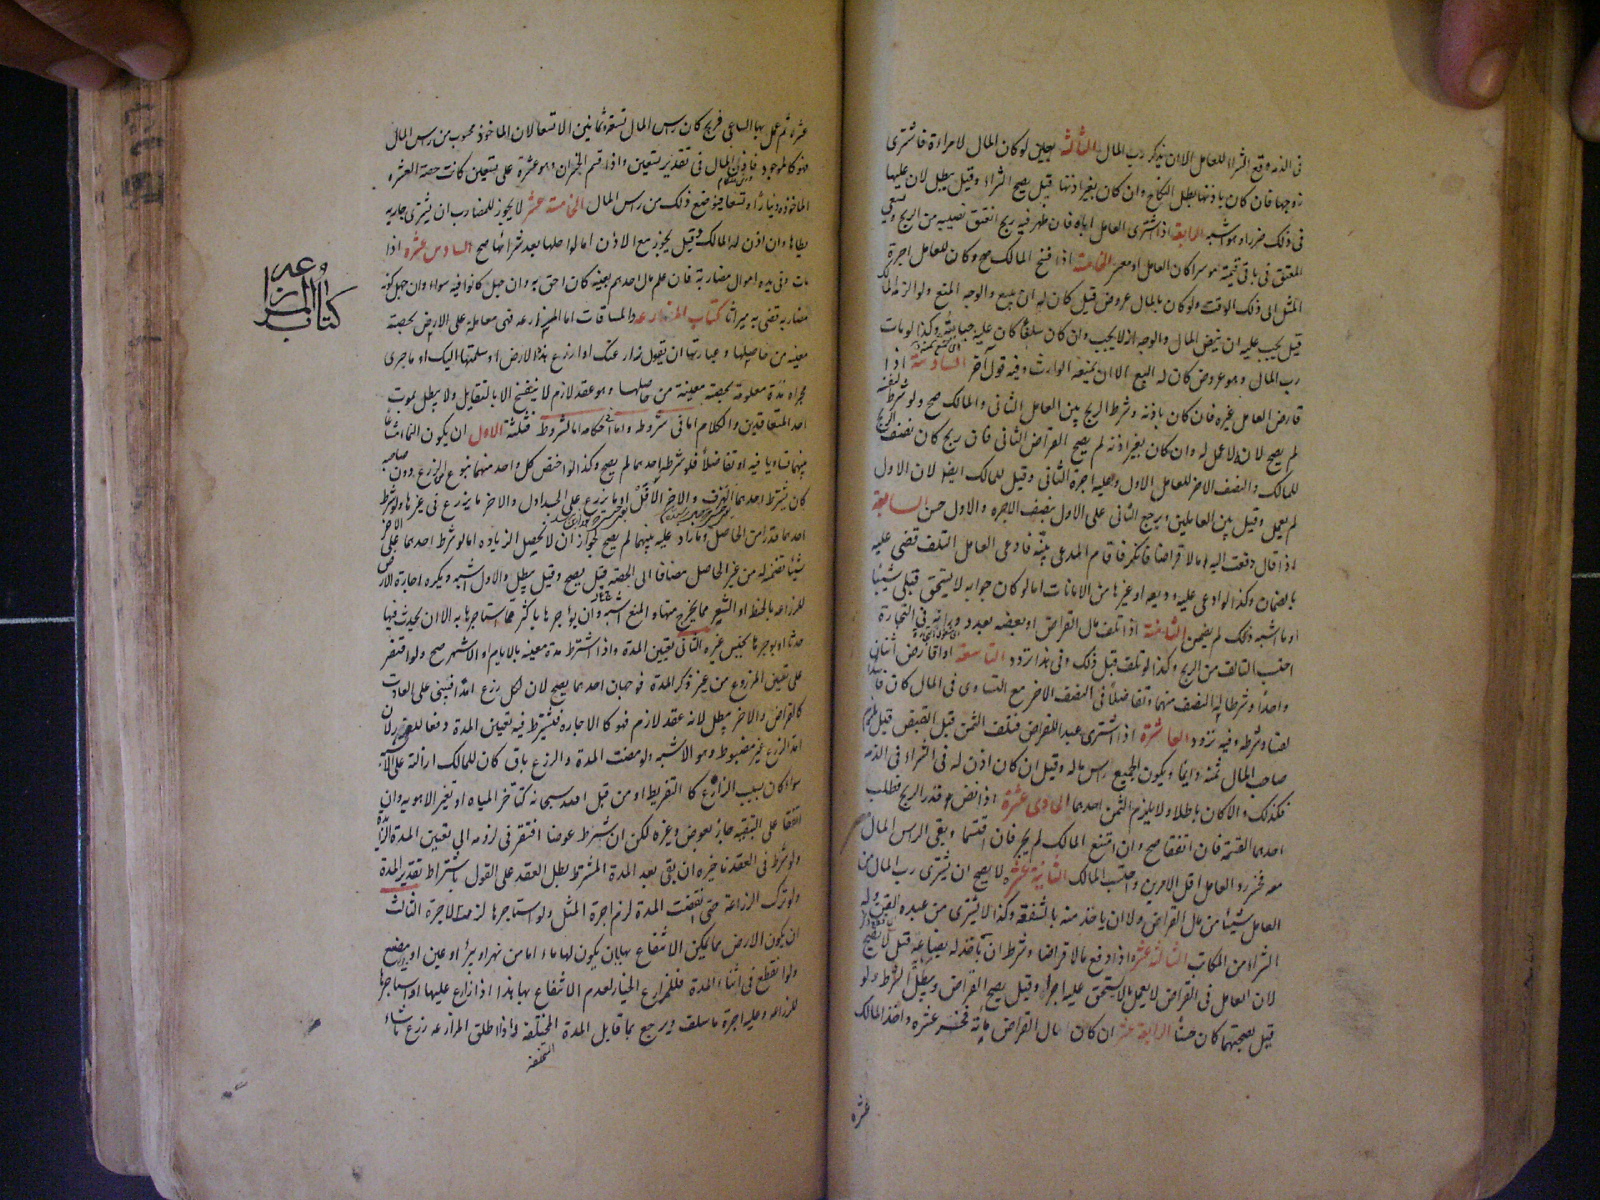 فى الذمه وقع الشراء للعامل الا ان يذكر رب المال الثالثه لو كان المال لامراءة فاشترى
زوجها فان كان باذنها بطل النكاح وان كان بغير اذنها قيل يصح الشراء وقيل يبطل لان عليها
فى ذلك ضررا وهو اشبه الرابعة اذا اشترى العامل اباه فان ظهر فيه ربح انعتق نصيبه من الربح ويسعى
المعتق فى باقى قيمته موسرا كان العامل او معسرا الخامسة اذا فسخ المالك صح وكان للعامل اجرة
المثل الى ذلك الوقت ولو كان بالمال عروض قيل كان له ان يبيع والوجه المنع ولو الزمه المالك
قيل يجب عليه ان ينض المال والوجه انه لا يجب وان كان سلفا كان عليه جبايته وكذا لو مات
رب المال وهو عروض كان له البيع الا ان يمنعه الوارث وفيه قول آخر السادسة اذا
قارض العامل غيره فان كان باذنه وشرط الربح بين العامل الثانى والمالك صح ولو شرط لنفسه
لم يصح لانه لا عمل له وان كان بغير اذنه لم يصح القراض الثانى فان ربح كان نصف الربح
للمالك والنصف الاخر للعامل الاول وعليه اجرة الثانى وقيل للمالك ايضا لان الاول
لم يعمل وقيل بين العاملين ويرجع الثانى على الاول بنصف الاجره والاول حسن السابعة
اذا قال دفعت اليه مالا قراضا فانكر فاقام المدعى بينة فادعى العامل التلف قضى عليه
بالضمان وكذا لو ادعى عليه وديعه او غيرها من الامانات اما لو كان جوابه لا يستحق قبلى شيئا
او ما اشبه ذلك لم يضمن الثامنة اذا تلف مال القراض او بعضه بعد دورانه فى التجارة
احتسب التالف من الربح وكذا لو تلف قبل ذلك وفى هذا تردد التاسعة اذا قارض اثنان
واحدا وشرطا له النصف منهما وتفاضلا فى النصف الاخر مع التساوى فى المال كان فاسدا
لفساد شرطه وفيه تردد العاشرة اذا اشترى عبدا للقراض فتلف الثمن قبل القبض قيل يلزم
صاحب المال ثمنه دائما ويكون الجميع راس ماله وقيل ان كان اذن له فى الشراء فى الذمه
فكذلك والا كان باطلا ولا يلزم الثمن احدهما الحادى عشرة اذا نض قدر الربح فطلب
احدهما القسمه فان اتفقا صح وان امتنع المالك لم يجبر فان اقتسما وبقى الراس المال
معه فخسر رد العامل اقل الامرين واحتسب المالك الثانية عشره لا يصح ان يشترى رب المال من
العامل شيئا من مال القراض ولا ان ياخذ منه بالشفعه وكذا لا يشترى من عبده القن وله
الشراء من المكاتب الثالثه عشره اذا دفع مالا قراضا وشرط ان ياخذ له بضاعه قيل لا يصح
لان العامل فى القراض لا يعمل ما لا يستحق عليه اجرا وقيل يصح القراض ويبطل الشرط ولو
قيل بصحتهما كان حسنا الرابعة عشر ان كان مال القراض مائة فخسر عشره واخذ المالك
عشره
عشره ثم عمل بها الساعى فربح كان راس المال تسعه وثمانين الا تسعا لان الماخوذ محسوب من راس المال
فهو كالموجود فاذن المال فى تقدير تسعين واذا قسم الخسران وهو عشرة على تسعين كانت حصة العشره
الماخوذه دينارا وتسعا فيوضع ذلك من راس المال الخامسة عشر لا يجوز للمضارب ان يشترى جاريه
يطاها وان اذن له المالك وقيل يجوز مع الاذن اما لو احلها بعد شرائها صح السادس عشره اذا
مات وفى يده اموال مضاربة فان علم مال احدهم بعينه كان احق به وان جهل كانوا فيه سواء وان جهل كونه
مضاربه قضى به ميراثا كتاب المزارعه والمساقات اما المزارعه فهى معامله على الارض بحصة
معينه من حاصلها وعبارتها ان يقول زارعتك او ازرع هذه الارض او سلمتها اليك او ما جرى
مجراه مدة معلومة بحصة معينة من حاصلها وهو عقد لازم لا ينفسخ الا بالتقايل ولا يبطل بموت
احد المتعاقدين والكلام اما فى شروطه واما احكامه اما الشروط فثلثة الاول ان يكون النماء مشاعا
بينهما تساويا فيه او تفاضلا فلو شرطه احدهما لم يصح وكذا لو اختص كل واحد منهما بنوع من الزرع دون صاحبه
كان يشترط احدهما الهرف والاخر الافل او ما يزرع على الجداول والاخر ما يزرع فى غيرها ولو شرط
احدهما قدرا من الحاصل وما زاد عليه بينهما لم يصح لجواز ان لا تحصل الزياده اما لو شرط احدهما على الاخر
شيئا يضمنه له من غير الحاصل مضافا الى الحصة قيل يصح وقيل يبطل والاول اشبه ويكره اجارة الارض
للزراعه بالحنطه او الشعير مما يخرج منها والمنع اشبه وان يؤاجرها باكثر مما استاجرها به الا ان يحدث فيها
حدثا او يوجرها بجنس غيره الثانى تعيين المدة واذا اشترط مدة معينه بالايام والاشهر صح ولو اقتصر
على تعيين المزروع من غير ذكر المدة فوجهان احدهما يصح لان لكل زرع امدا فيبنى على العادت
كالقراض والاخر يبطل لانه عقد لازم فهو كالاجاره فيشترط فيه تعيين المدة دفعا للغرر لان
امد الزرع غير مضبوط وهو الاشبه ولو مضت المدة والزرع باق كان للمالك ازالته على الاشبه
سواء كان بسبب الزارع كالتفريط او من قبل الله سبحانه كتاخر المياه او تغير الاهويه وان
اتفقا على التبقيه جاز بعوض وغيره لكن ان شرط عوضا افتقر فى لزومه الى تعيين المدة الزائده
ولو شرط فى العقد تاخيره ان بقى بعد المدة المشترطه بطل العقد على القول باشتراط تقدير المدة
ولو ترك الزراعة حتى انقضت المدة لزم اجرة المثل ولو استاجرها لزمته الاجرة الثالث
ان يكون الارض مما يمكن الانتفاع بها بان يكون لها ماء اما من نهر او بئر او عين او مصنع
ولو انقطع فى اثناء المدة فللمزارع الخيار لعدم الانتفاع بها هذا اذا زارع عليها او استاجرها
للزراعه وعليه اجرة ما سلف ويرجع بما قابل المدة المتخلفه واذا اطلق المزارعه زرع ما شاء
كتاب المزارعه